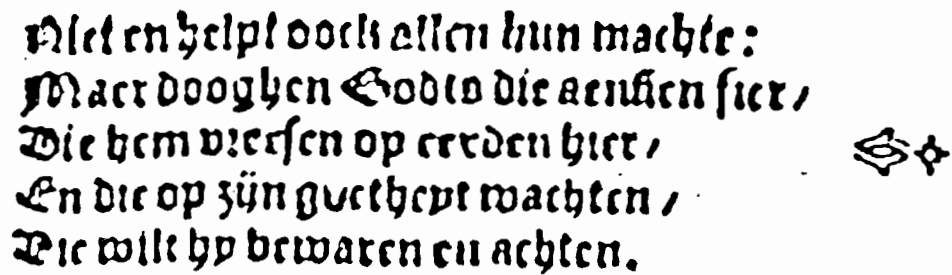 Niet en helpt oock allen hun machte:
Maer dooghen Godts die aensien fier/
Die hem vreesen op eerden hier/
En die op zijn goetheyt wachten/
Die wilt hy bewaren en achten.